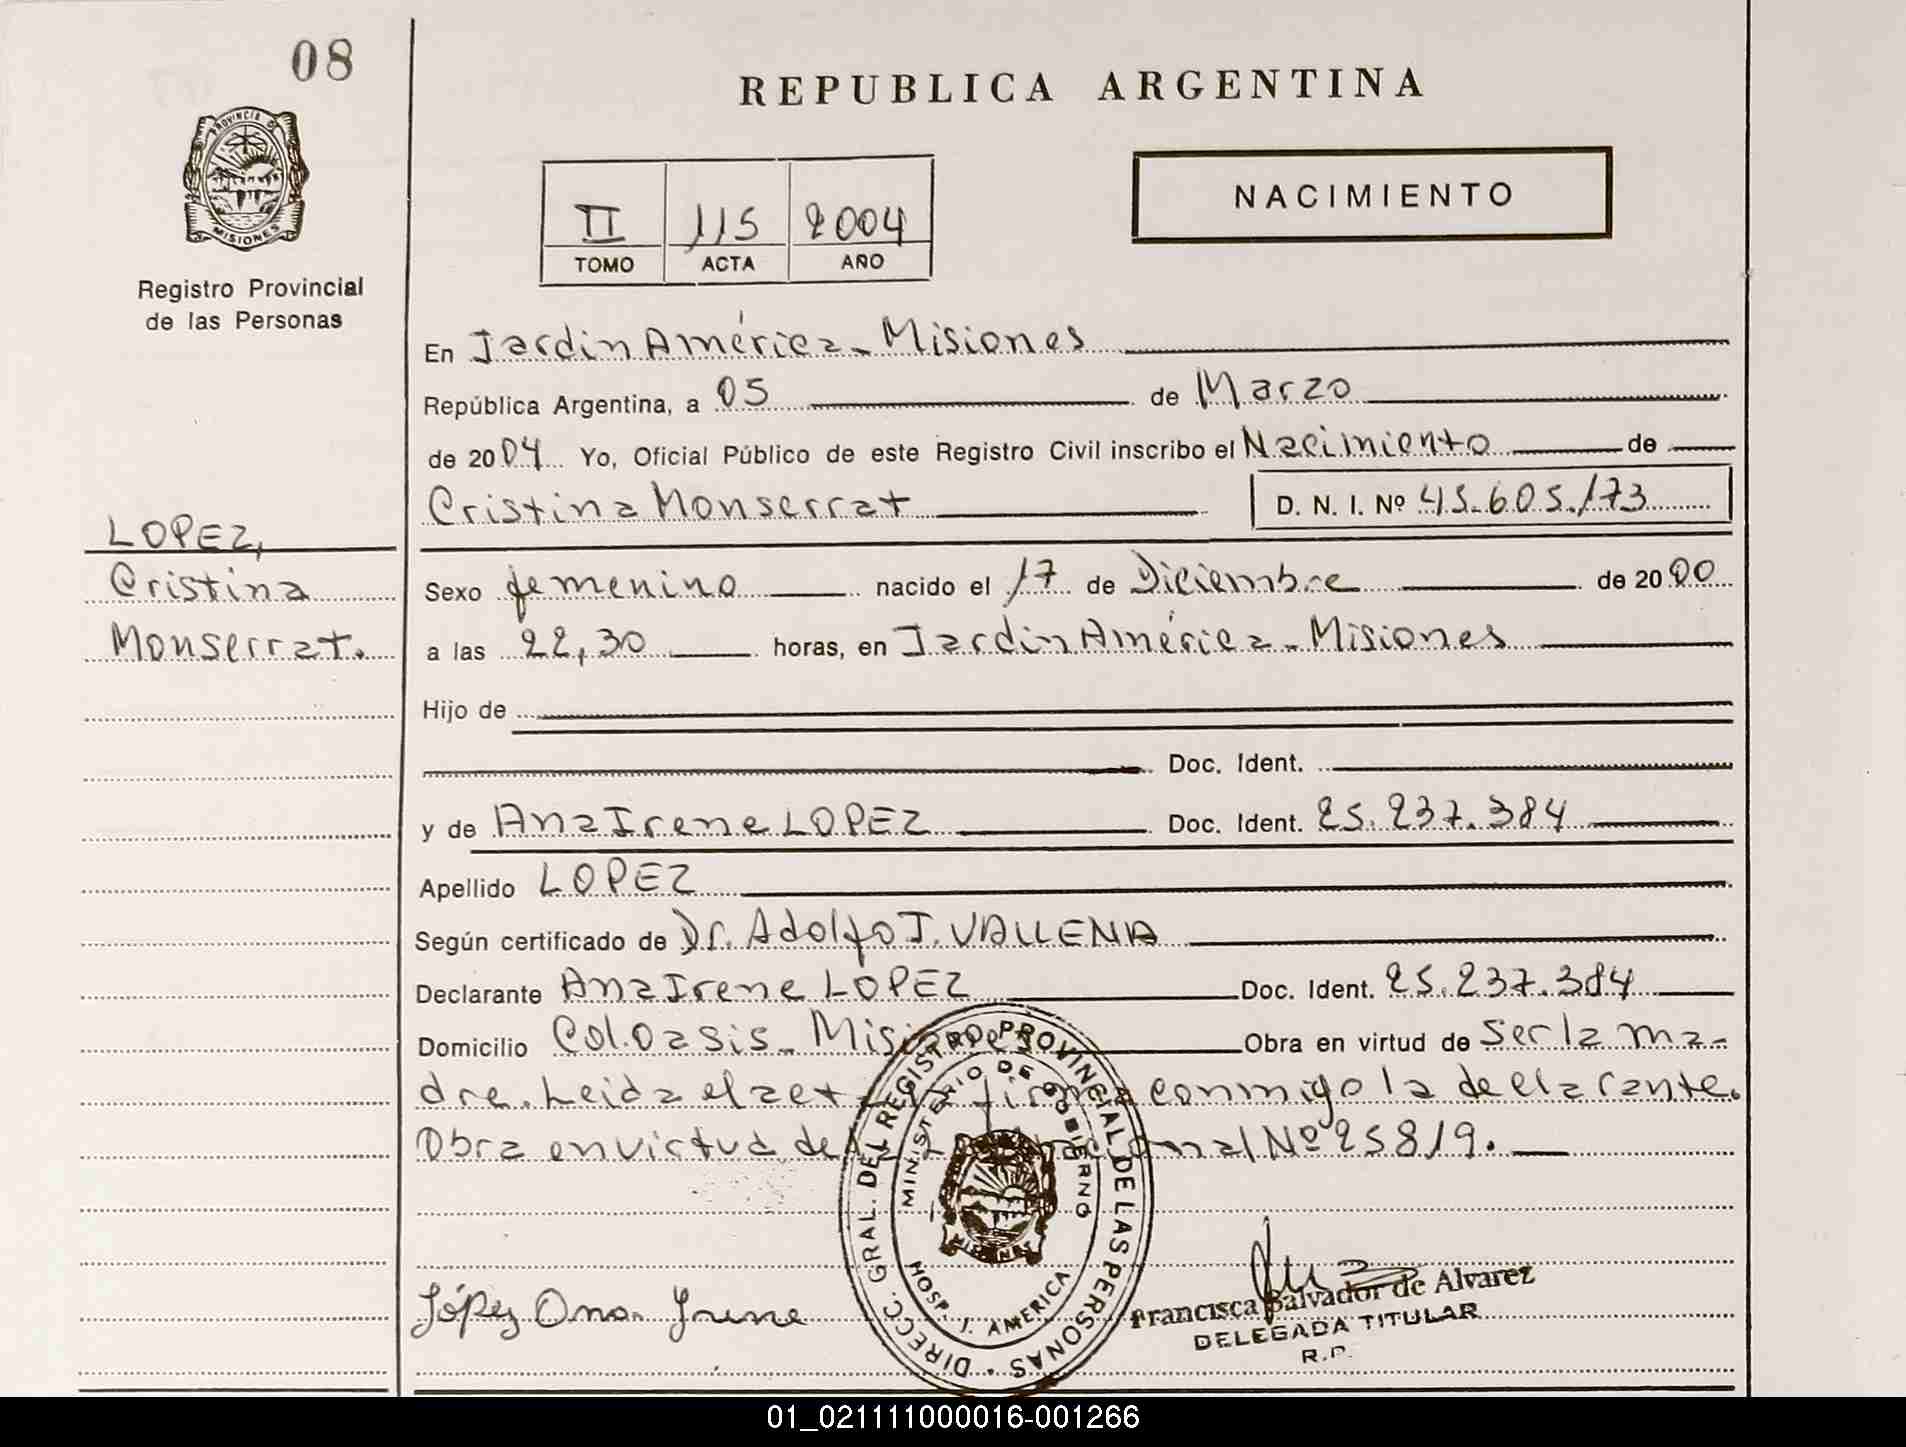 08
REPUBLICA ARGENTINA
PROVINCIA DE
MISIONES
Registro Provincial
de las Personas
II 115 2004
TOMO ACTA AÑO
NACIMIENTO
En Jardin América - Misiones
República Argentina, a 05 de Marzo
de 2004 Yo, Oficial Público de este Registro Civil inscribo el Nacimiento de
Cristina Monserrat D. N. I. Nº 45.605.173
LOPEZ,
Cristina
Monserrat.
Sexo femenino nacido el 17 de Diciembre de 2000
a las 22,30 horas, en Jardin América - Misiones
Hijo de
Doc. Ident.
y de Ana Irene LOPEZ Doc. Ident. 25.237.384
Apellido LOPEZ
Según certificado de Dr. Adolfo J. VALLENA
Declarante Ana Irene LOPEZ Doc. Ident. 25.237.384
Domicilio Col. Oasis - Misiones Obra en virtud de ser la ma-
dre. Leida el acta firma conmigo la declarante.
Obra en virtud de Nacional Nº 25819.
DIRECC. GRAL. DEL REGISTRO PROVINCIAL DE LAS PERSONAS
MINISTERIO DE GOBIERNO
MISIONES
HOSP. J. AMERICA
López Ana Irene
Francisca Salvador de Alvarez
DELEGADA TITULAR
R.P.
01_021111000016-001266